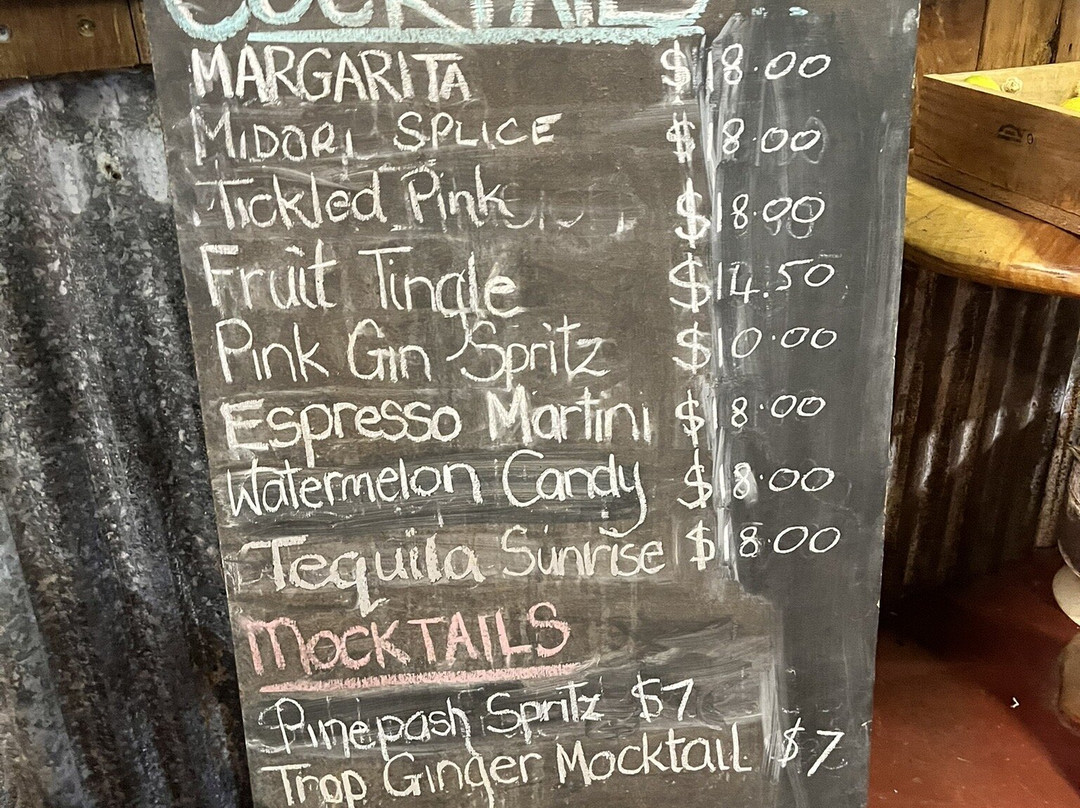 COCKTAILS
MARGARITA $18.00
MIDORI SPLICE $18.00
Tickled Pink $18.00
Fruit Tingle $14.50
Pink Gin Spritz $10.00
Espresso Martini $18.00
Watermelon Candy $18.00
Tequila Sunrise $18.00
MOCKTAILS
Pinepash Spritz $7
Trop Ginger Mocktail $7